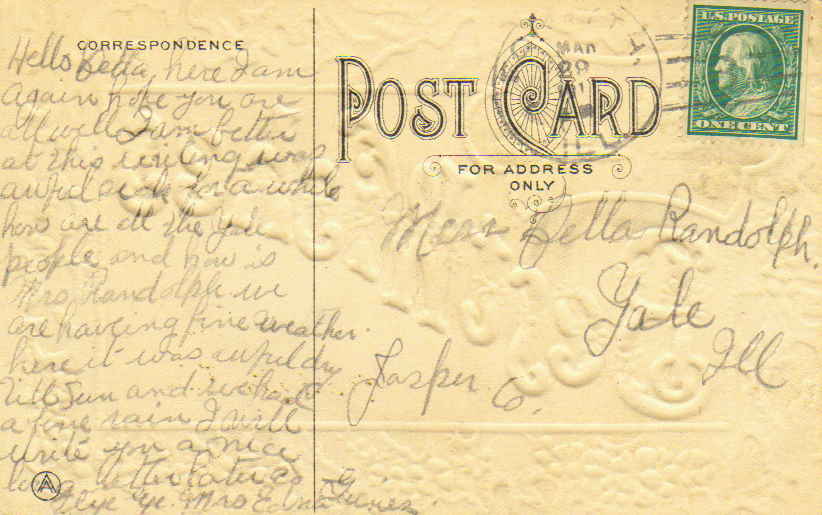 CORRESPONDENCE
Hello Zella, here I am
again hope you are
all well I am better
at this writing was
awful sick for a while
how are all the Yale
people and how is
Mrs Randolph we
are having fine weather
here it was awful dry
till Sun and we had
a fine rain I will
write you a nice
long letter later
Bye Mrs Edna
POST CARD
FOR ADDRESS
ONLY
MAR
29
ILL
U.S. POSTAGE
ONE CENT
Miss Zella Randolph.
Yale
Ill
Jasper Co.
A